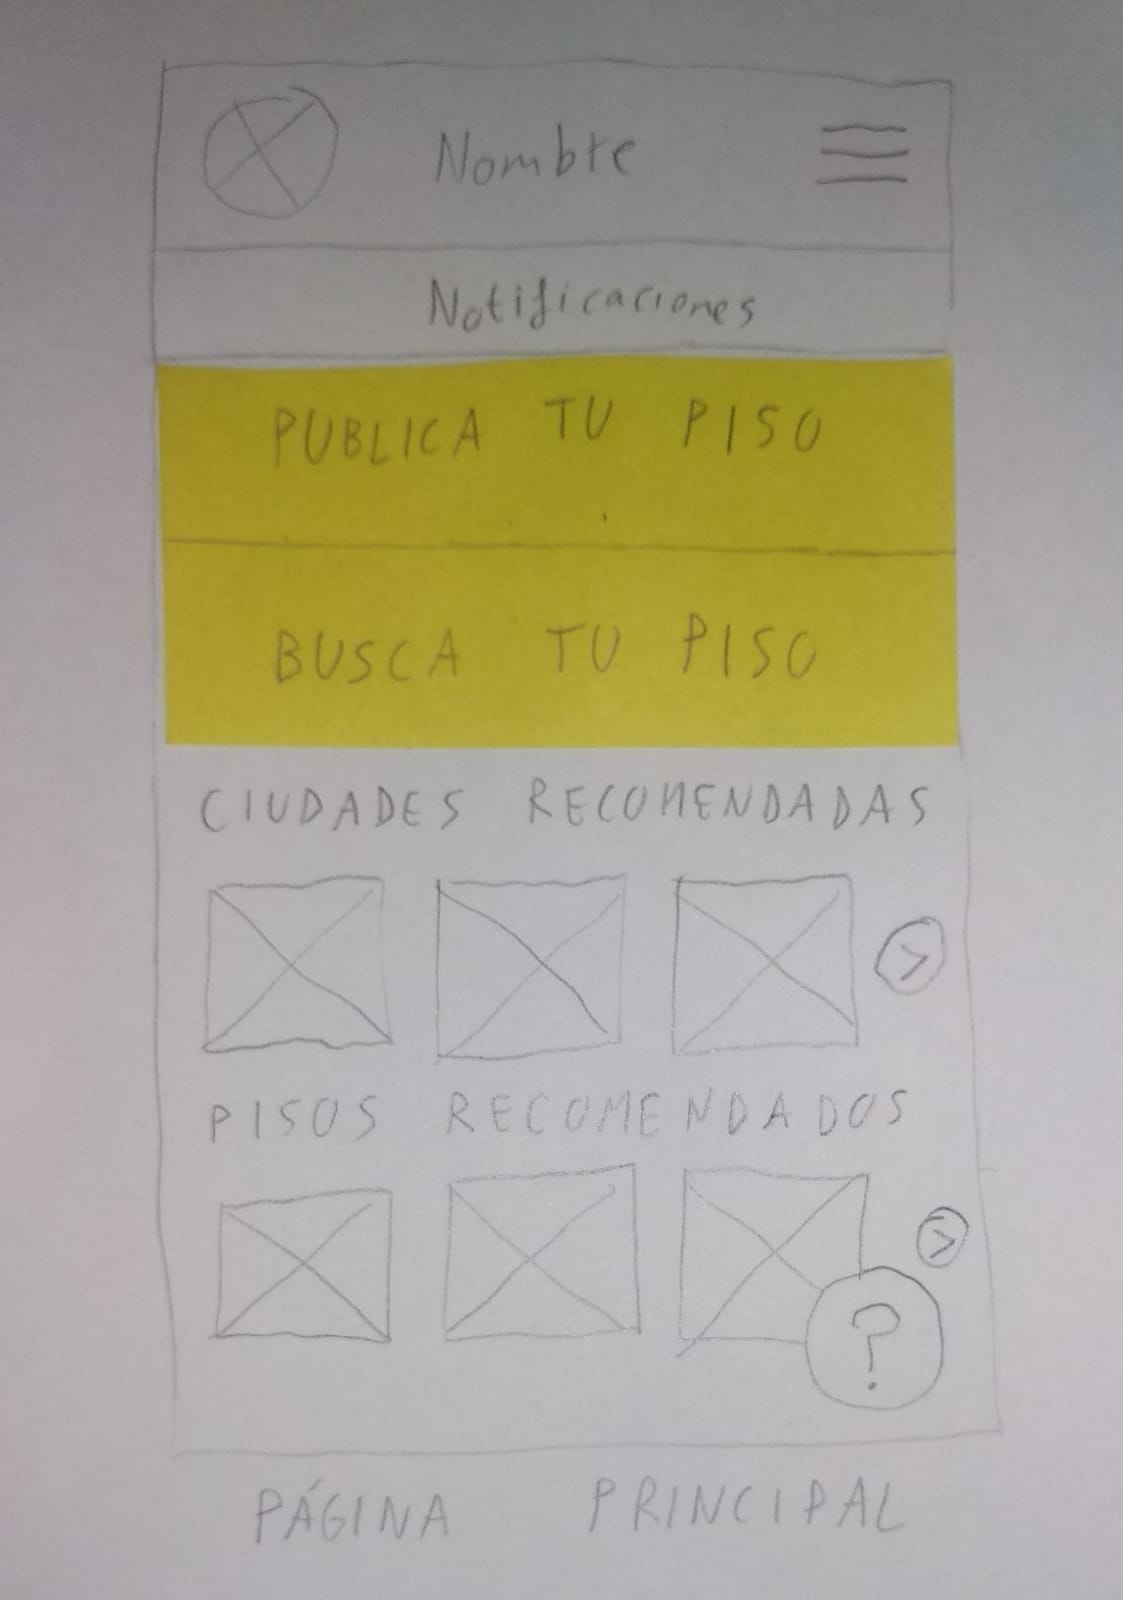 Nombre
Notificaciones
PUBLICA TU PISO
BUSCA TU PISO
CIUDADES RECOMENDADAS
>
PISOS RECOMENDADOS
>
?
PÁGINA PRINCIPAL